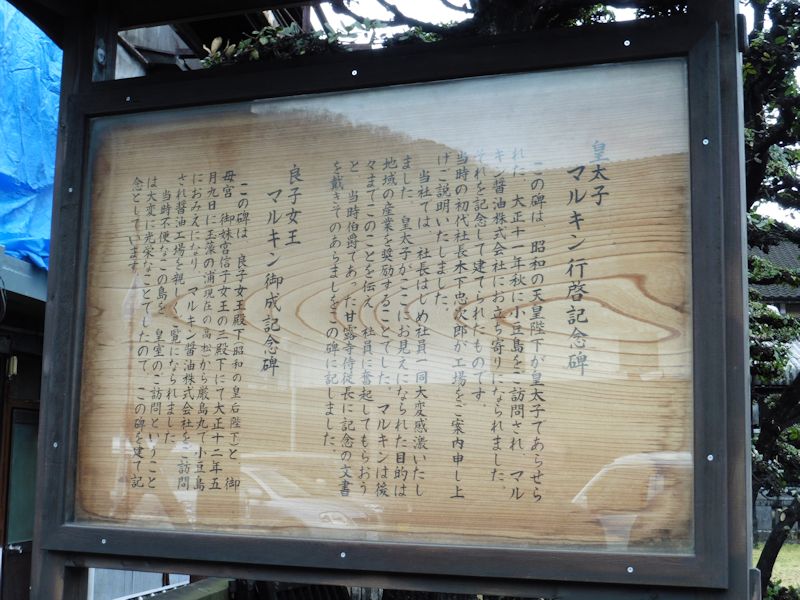 皇太子
マルキン行啓記念碑
この碑は 昭和の天皇陛下が皇太子であらせら
れた 大正十一年秋に小豆島をご訪問され マル
キン醤油株式会社にお立ち寄りになられました。
それを記念して建てられたものです。
当時の初代社長木下忠次郎が工場をご案内申し上
げご説明いたしました。
当社では 社長はじめ社員一同大変感激いたし
ました 皇太子がここにお見えになられた目的は
地域の産業を奨励することでした マルキンは後
々までこのことを伝え 社員に奮起してもらおう
と 当時伯爵であった甘露寺侍従長に記念の文書
を戴きそのあらましをこの碑に記しました。
良子女王
マルキン御成記念碑
この碑は 良子女王殿下(昭和の皇后陛下)と 御
母宮 御妹宮信子女王の三殿下にて大正十二年五
月九日に玉藻の浦(現在の高松)から厳島丸で小豆島
におみえになり マルキン醤油株式会社をご訪問
され醤油工場を親しくご覧になられました
当時不便なこの島を 皇室のご訪問ということ
は大変に光栄なことでしたので この碑を建て記
念としています。